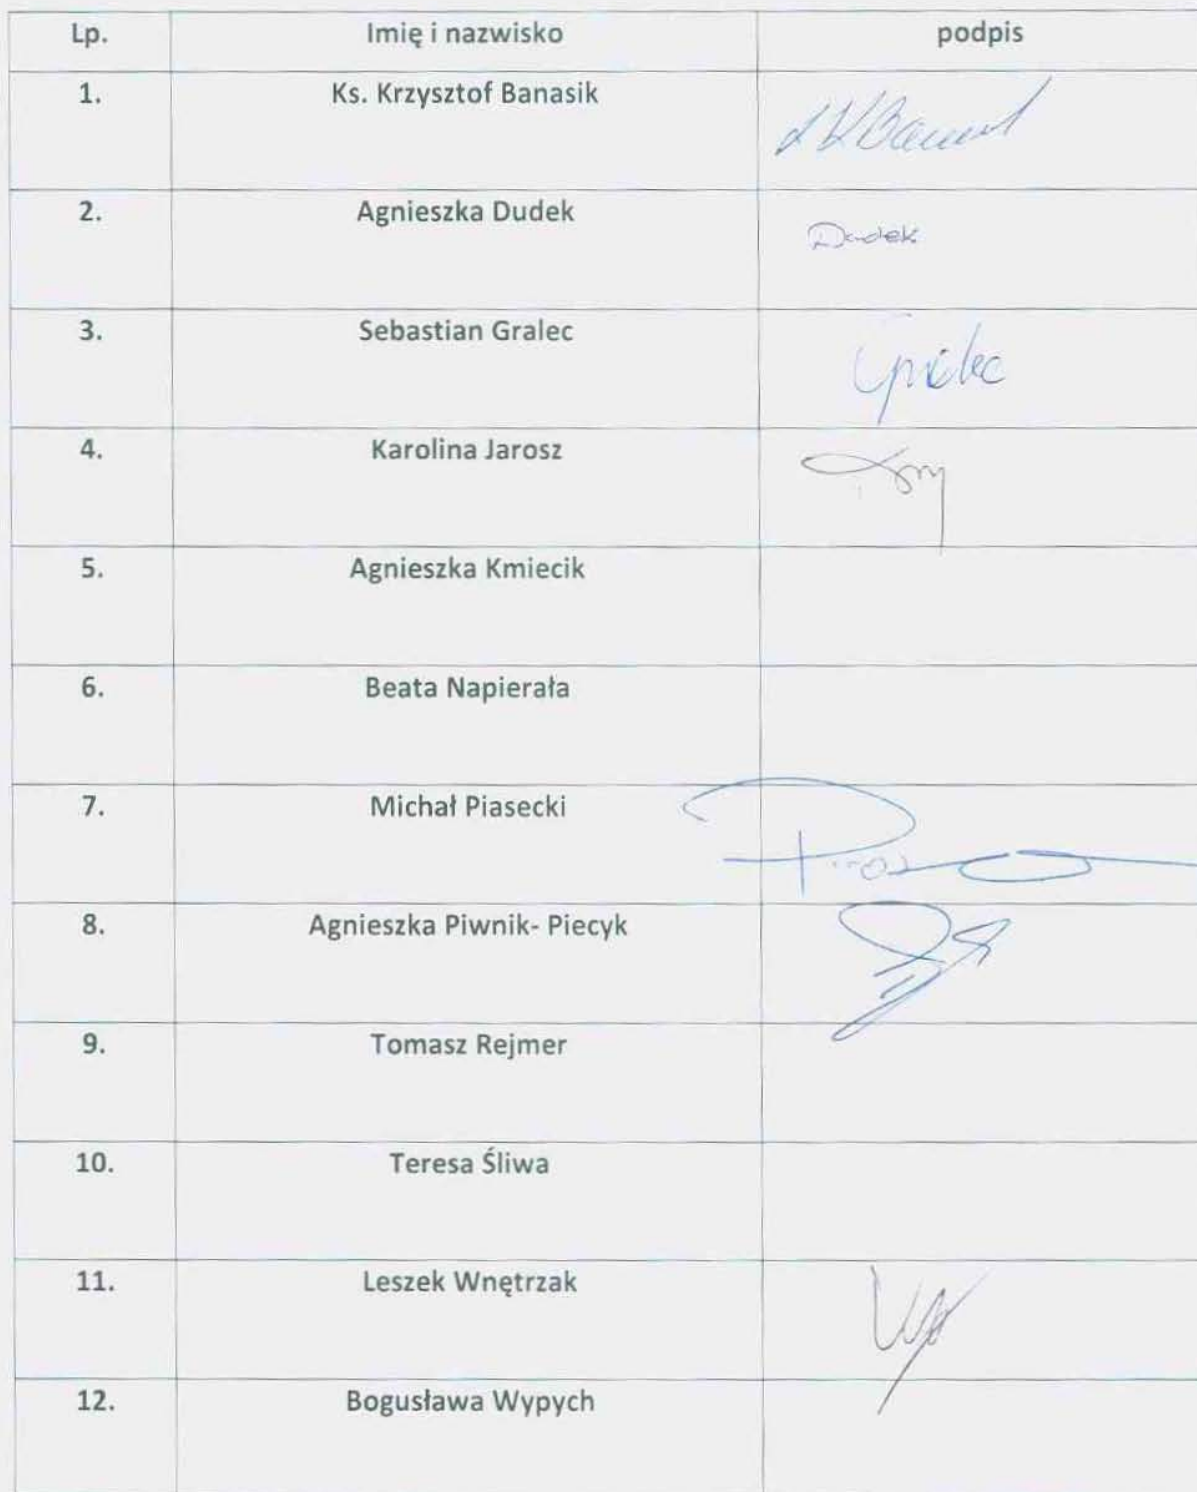 Lp. Imię i nazwisko podpis
1. Ks. Krzysztof Banasik
2. Agnieszka Dudek Dudek
3. Sebastian Gralec Gralec
4. Karolina Jarosz
5. Agnieszka Kmiecik
6. Beata Napierała
7. Michał Piasecki
8. Agnieszka Piwnik- Piecyk
9. Tomasz Rejmer
10. Teresa Śliwa
11. Leszek Wnętrzak
12. Bogusława Wypych